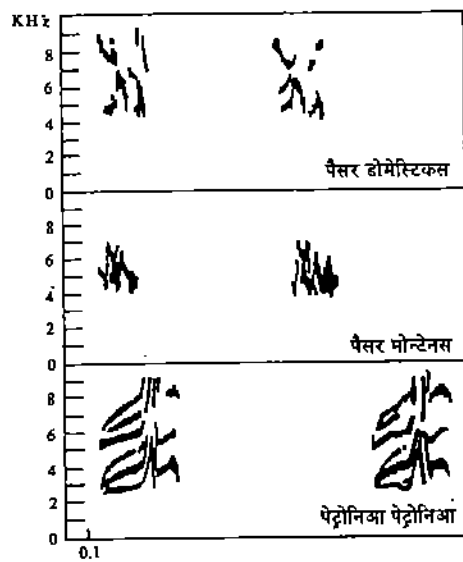 KHz
8
6
4
2
0
पैसर डोमेस्टिकस
8
6
4
2
0
पैसर मोन्टेनस
8
6
4
2
0
पेट्रोनिआ पेट्रोनिआ
0.1